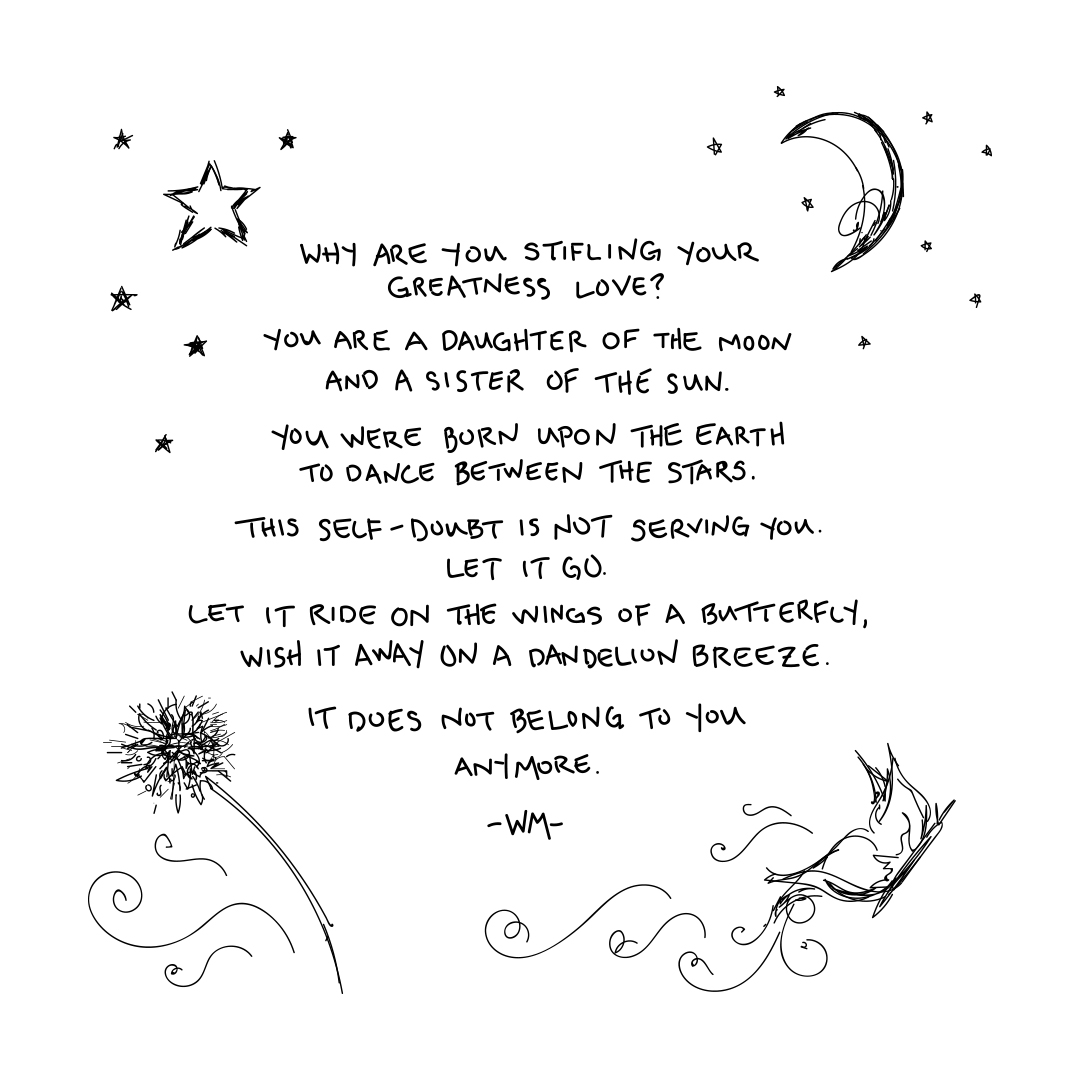 WHY ARE YOU STIFLING YOUR
GREATNESS LOVE?
YOU ARE A DAUGHTER OF THE MOON
AND A SISTER OF THE SUN.
YOU WERE BORN UPON THE EARTH
TO DANCE BETWEEN THE STARS.
THIS SELF-DOUBT IS NOT SERVING YOU.
LET IT GO.
LET IT RIDE ON THE WINGS OF A BUTTERFLY,
WISH IT AWAY ON A DANDELION BREEZE.
IT DOES NOT BELONG TO YOU
ANYMORE.
-WM-